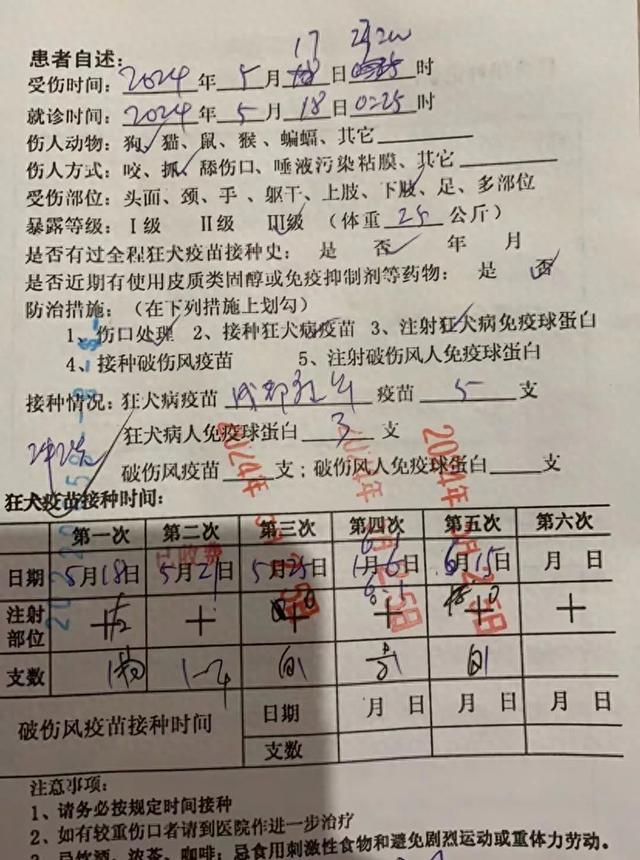 患者自述：
受伤时间：2024年5月17日时
就诊时间：2024年5月18日0:25时
伤人动物：狗、猫、鼠、猴、蝙蝠、其它
伤人方式：咬、抓、舔伤口、唾液污染粘膜、其它
受伤部位：头面、颈、手、躯干、上肢、下肢、足、多部位
暴露等级：Ⅰ级 Ⅱ级 Ⅲ级（体重25公斤）
是否有过全程狂犬疫苗接种史： 是 否 年 月
是否近期有使用皮质类固醇或免疫抑制剂等药物： 是 否
防治措施：（在下列措施上划勾）
1、伤口处理 2、接种狂犬病疫苗 3、注射狂犬病免疫球蛋白
4、接种破伤风疫苗 5、注射破伤风人免疫球蛋白
接种情况：狂犬病疫苗 疫苗5支
狂犬病人免疫球蛋白3支
破伤风疫苗 支；破伤风人免疫球蛋白 支
狂犬疫苗接种时间：
第一次 第二次 第三次 第四次 第五次 第六次
日期 5月18日 5月21日 5月25日 月 日 6月15日 月 日
注射部位
支数
破伤风疫苗接种时间 日期 月 日 月 日 月 日
支数
注意事项：
1、请务必按规定时间接种
2、如有较重伤口者请到医院作进一步治疗
3、忌饮酒、浓茶、咖啡；忌食用刺激性食物和避免剧烈运动或重体力劳动。